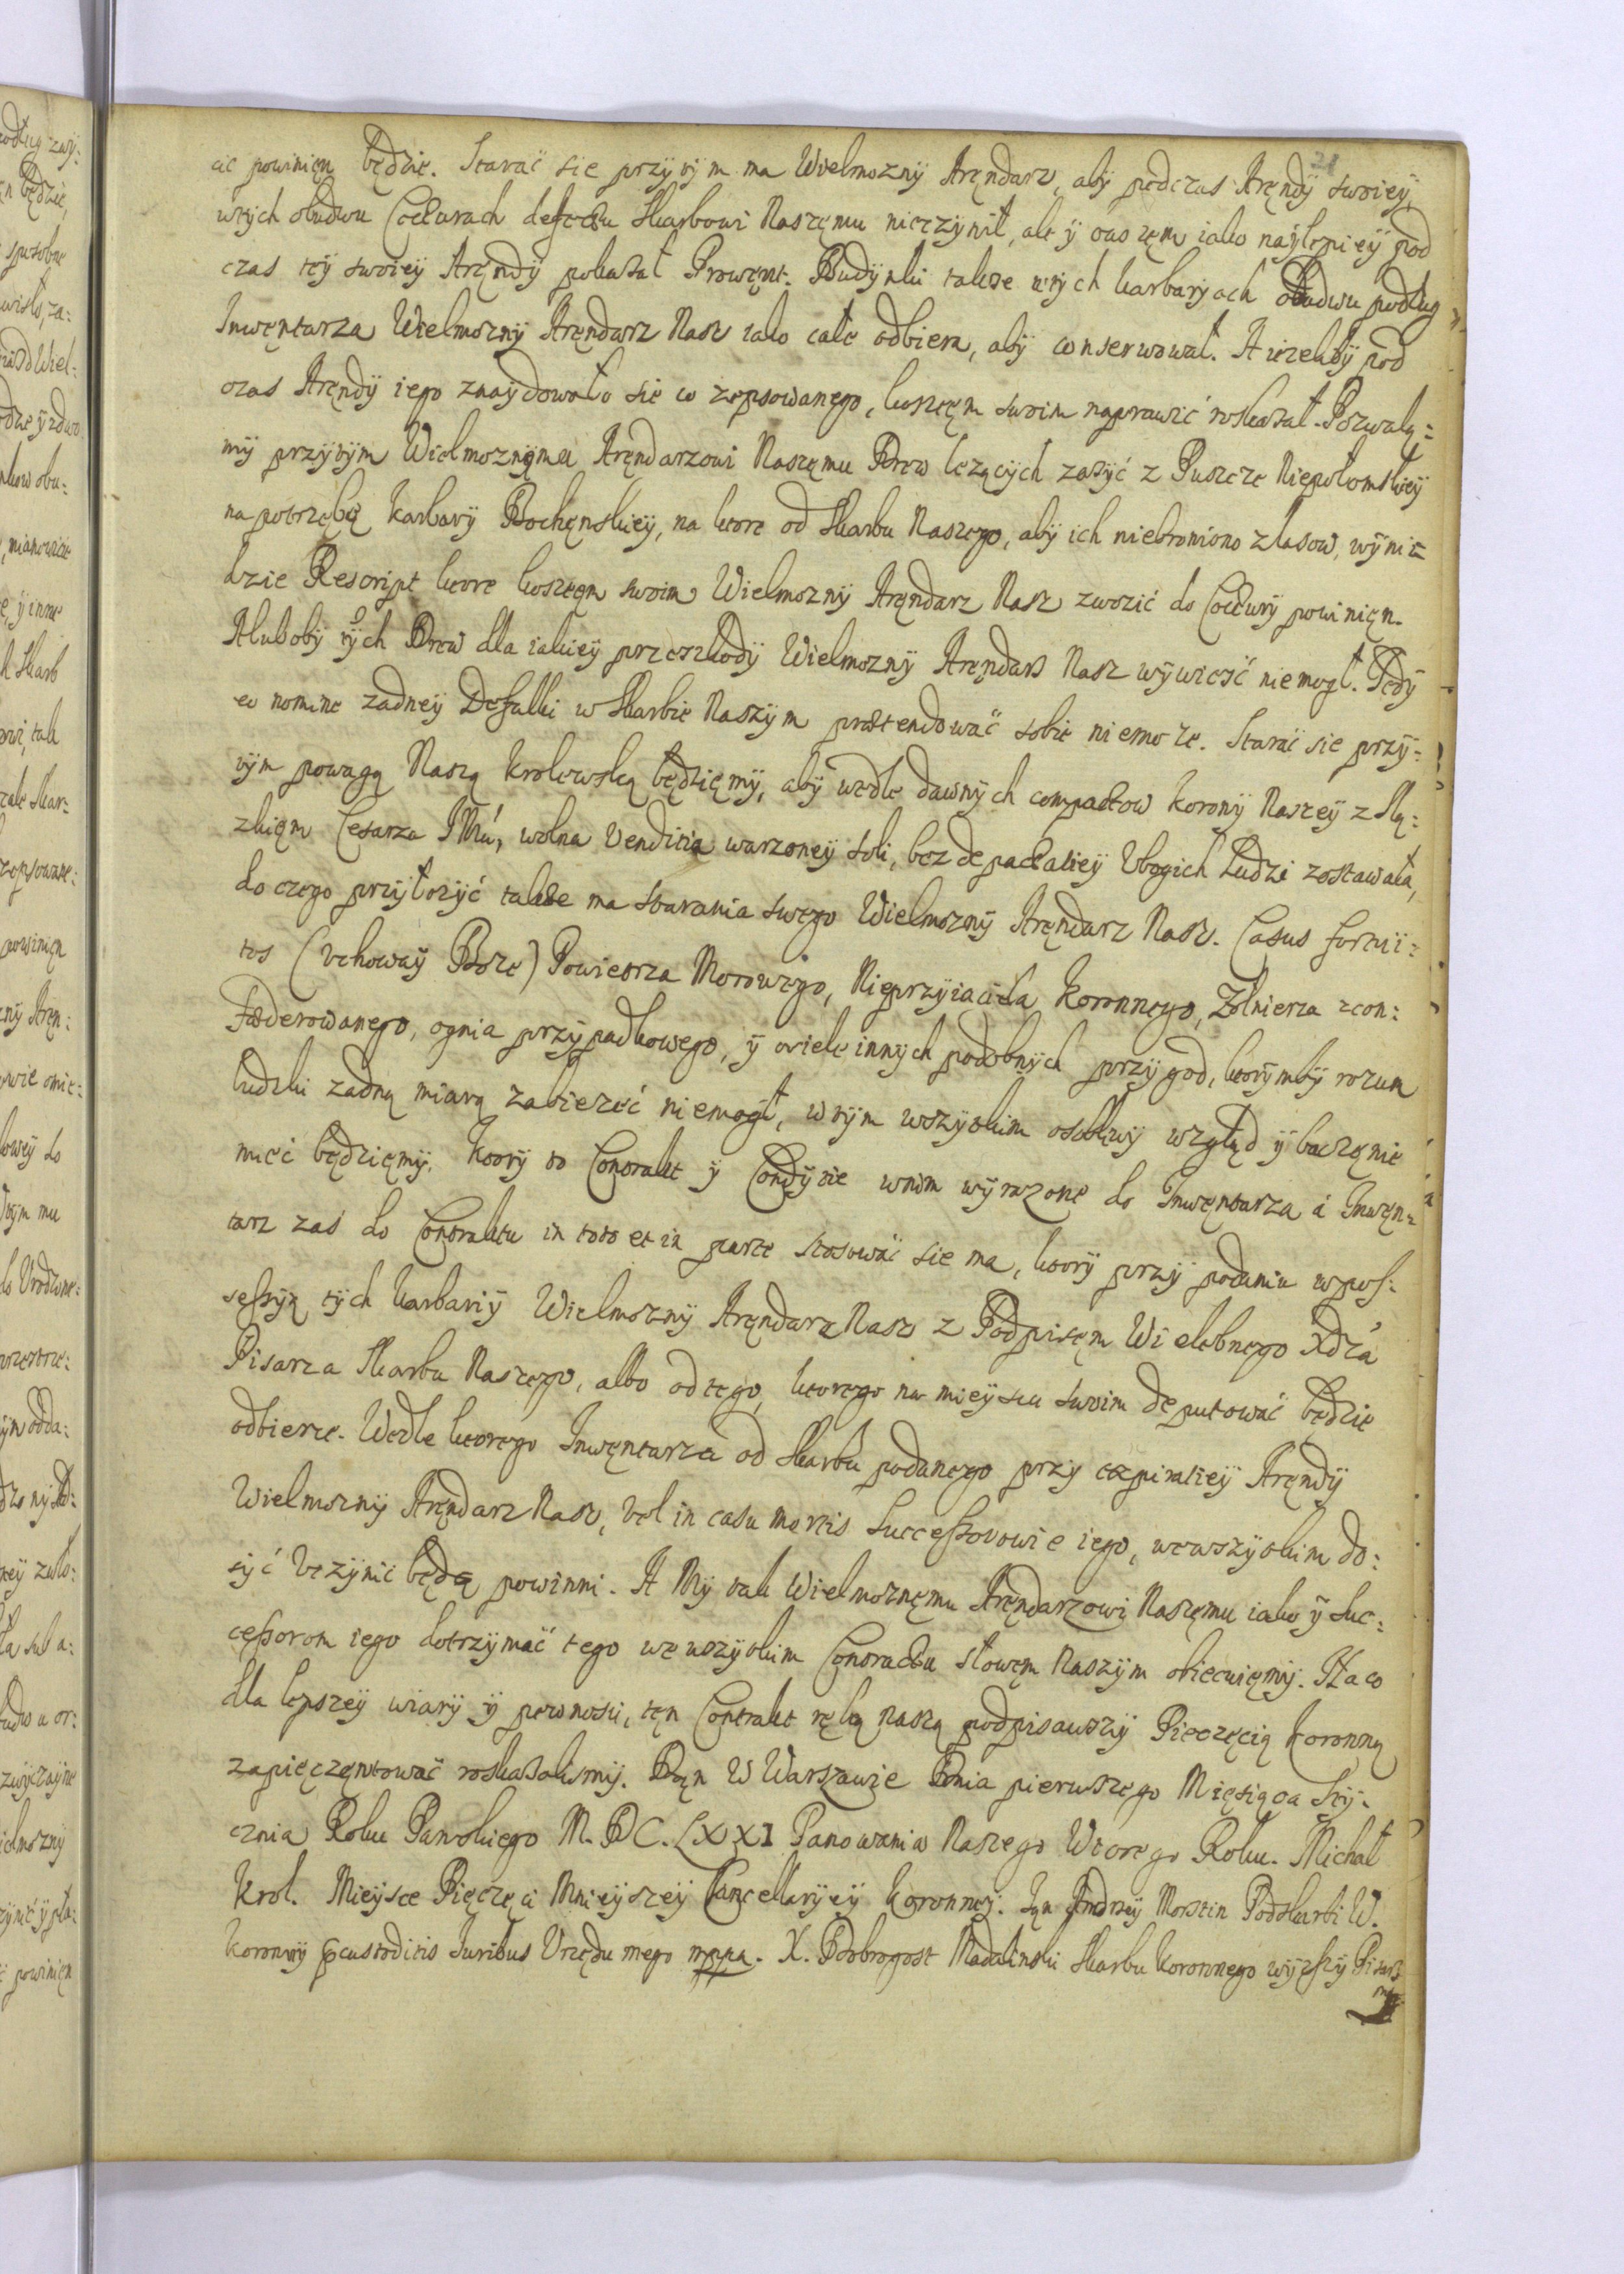 21
cic powinięn będzie. Starać się przy tÿm ma Wielmoznÿ Aręndarz, abÿ podczas Aręndÿ swoieÿ,
wtych obudwu Cocturach defectu Skarbowi Naszęmu nieczÿnił, ale ÿ owszęm iako naÿlepieÿ pod
czas teÿ swoieÿ Aręndÿ pokazał Prowęnt. Budÿnki takze wtÿch karbarÿach obudwu podług
Inwęntarza Wielmoznÿ Aręndarz Nasz iako całe odbiera, abÿ conserwował. A iezelibÿ pod
czas Aręndÿ iego znaÿdowało się co zepsowanego, kosztęm swoim naprawić roskazał. Pozwalą:
mÿ przÿtÿm Wielmoznęmu Aręndarzowi Naszęmu Drew lezących zazÿć z Puszcze Niepołomskieÿ
na potrzebę karbarÿ Bochęnskieÿ, na ktore od Skarbu Naszego, abÿ ich niebroniono zlasow, wÿni:
dzie Rescript ktore kosztęm swoim Wielmoznÿ Aręndarz Nasz zwozić do Cocturÿ powinięn.
Alubobÿ tÿch Drew dla iakieÿ przeszkodÿ Wielmoznÿ Aręndarz Nasz wÿwieść niemogł. Tedÿ
eo nomine zadneÿ Defalki w Skarbie Naszÿm prætendować sobie niemoze. Starać się przÿ:
tÿm powagą Naszą krolewską będzięmÿ, abÿ wedle dawnÿch compactow koronÿ Naszeÿ z Slą:
zkięm Cesarza JMći, wolna venditia warzoneÿ soli, bez depactatieÿ Vbogich Ludzi zostawała,
do czego przÿłozÿć takze ma starania swego Wielmoznÿ Aręndarz Nasz. Casus fortuii:
tos (vchowaÿ Boze) Powietrza Morowego, Nieprzÿiaciela koronnego, Zołnierza zcon:
fæderowanego, ognia przÿpadkowego, ÿ owiele innÿch podobnÿch przÿgod, ktorÿmbÿ rozum
ludzki zadną miarą zabiezeć niemogł, w tÿm wszÿstkim osobliwÿ wzgląd ÿ baczęnie
mieć będzięmÿ. Ktorÿ to Contrakt ÿ Condÿcie wnim wÿrazone do Inwęntarza á Inwęn:
tarz zaś do Contraktu in toto et in parte stosować się ma, ktorÿ przÿ podaniu wpos:
sessÿą tÿch karbariÿ Wielmoznÿ Aręndarz Nasz z Podpisęm Wielebnego Xdzá
Pisarza Skarbu Naszego, albo od tego, ktorego na mieÿscu swoim deputować będzie
odbierze. Wedle ktorego Inwęntarza od Skarbu podanego przÿ expiratieÿ Aręndÿ
Wielmoznÿ Aręndarz Nasz, vel in casu mortis Successorowie iego, wewszÿstkim do:
sÿć vczÿnić będą powinni. A Mÿ tak Wielmoznęmu Aręndarzowi Naszęmu iako ÿ Suc:
cessorom iego dotrzÿmać tego we wszÿstkim Contractu słowęm Naszÿm obiecuięmÿ. Na co
dla lepszeÿ wiarÿ ÿ pewnosci, tęn Contrakt ręką naszą podpisawszÿ Pieczęcią koronną
zapięczęntować roskazalismÿ. Dęn W Warszawie Dnia pierwszego Mięsiąca Stÿ:
cznia Roku Panskiego M. DC. LXXI Panowania Naszego Wtorego Roku. Michał
Krol. Mieÿsce Pięczęci Mnieÿszeÿ Cancellarÿeÿ Koronneÿ. Jąn Andrzeÿ Morstin Podskarbi W.
koronnÿ custoditis Iuribus Vrzędu mego mppa. X. Dobrogost Nadolinski Skarbu Koronnego wÿzszÿ Pisarz
mp